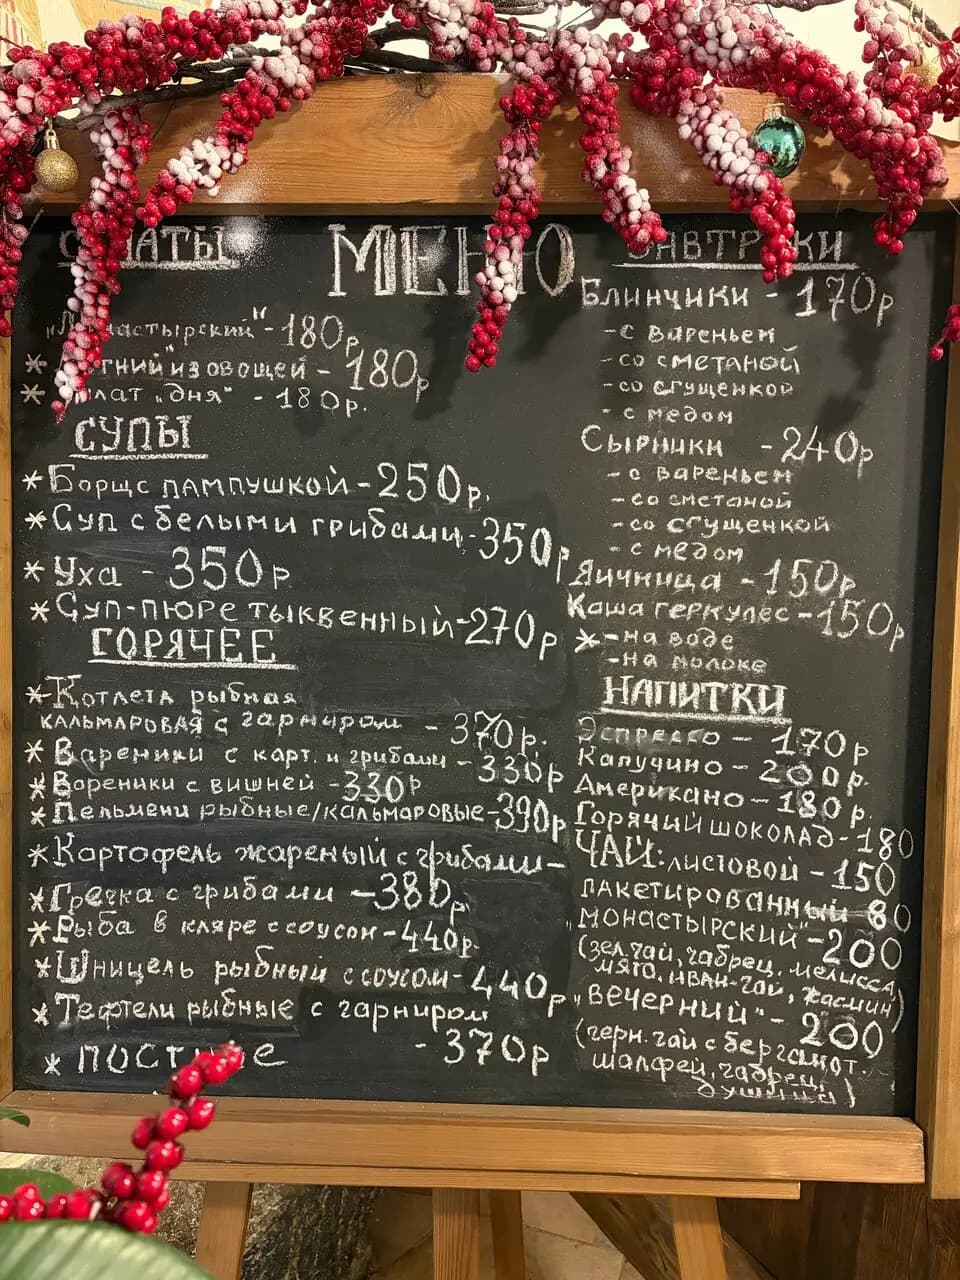 МЕНЮ
"Монастырский" - 180р
* из овощей - 180р
* Салат "дня" - 180р.
СУПЫ
* Борщ с пампушкой - 250р.
* Суп с белыми грибами - 350р
* Уха - 350р
* Суп-пюре тыквенный - 270р
ГОРЯЧЕЕ
* Котлета рыбная
кальмаровая с гарниром - 370р.
* Вареники с карт. и грибами - 330р
* Вареники с вишней - 330р
* Пельмени рыбные/кальмаровые - 390р
* Картофель жареный с грибами -
* Гречка с грибами - 380р
* Рыба в кляре с соусом - 440р.
* Шницель рыбный с соусом - 440р
* Тефтели рыбные с гарниром
- 370р
* ПОСТНОЕ
ЗАВТРАКИ
Блинчики - 170р
- с вареньем
- со сметаной
- со сгущенкой
- с медом
Сырники - 240р
- с вареньем
- со сметаной
- со сгущенкой
- с медом
Яичница - 150р
Каша геркулес - 150р
* - на воде
- на молоке
НАПИТКИ
Эспрессо - 170р
Капучино - 200р.
Американо - 180р.
Горячий шоколад - 180
ЧАЙ: листовой - 150
пакетированный 80
"монастырский" - 200
(зел.чай, чабрец, мелисса,
мята, иван-чай, жасмин)
"вечерний" - 200
(черн. чай с бергамот.
шалфей, чабрец,
душица)